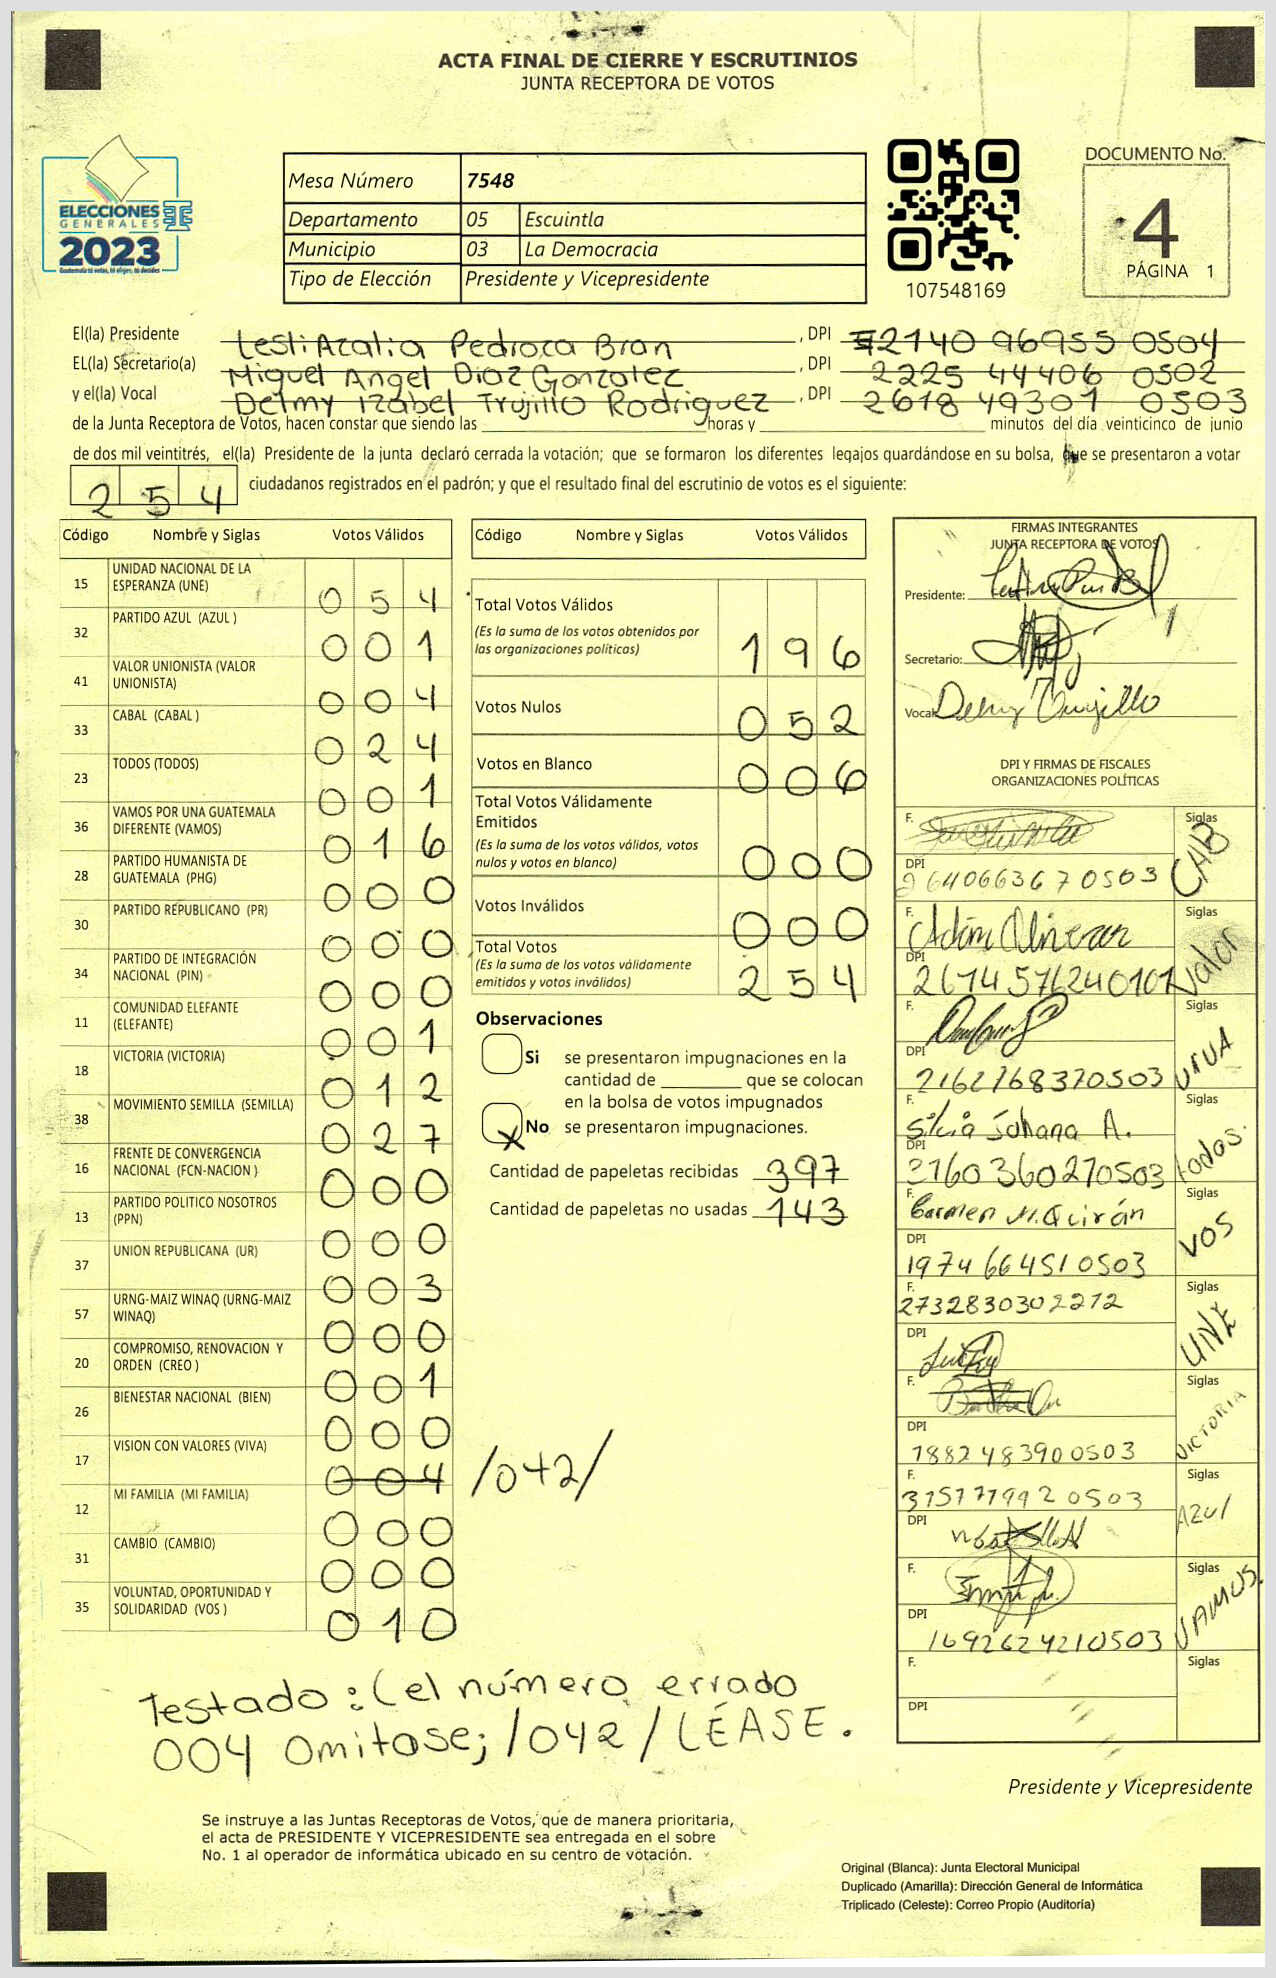 ACTA FINAL DE CIERRE Y ESCRUTINIOS
JUNTA RECEPTORA DE VOTOS
ELECCIONES
GENERALES
2023
Guatemala tú votas, tú eliges, tú decides
Mesa Número 7548
Departamento 05 Escuintla
Municipio 03 La Democracia
Tipo de Elección Presidente y Vicepresidente
107548169
DOCUMENTO No.
4
PÁGINA 1
El(la) Presidente Lesli Azalia Pedroza Bran, DPI 2140 96955 0504
EL(la) Secretario(a) Miguel Angel Diaz Gonzalez, DPI 2225 44406 0502
y el(la) Vocal Delmy Izabel Trujillo Rodriguez, DPI 2618 49301 0503
de la Junta Receptora de Votos, hacen constar que siendo las horas y minutos del día veinticinco de junio
de dos mil veintitrés, el(la) Presidente de la junta declaró cerrada la votación; que se formaron los diferentes legajos guardándose en su bolsa, que se presentaron a votar
254 ciudadanos registrados en el padrón; y que el resultado final del escrutinio de votos es el siguiente:
Código Nombre y Siglas Votos Válidos
15 UNIDAD NACIONAL DE LA ESPERANZA (UNE) 054
32 PARTIDO AZUL (AZUL ) 001
41 VALOR UNIONISTA (VALOR UNIONISTA) 004
33 CABAL (CABAL ) 024
23 TODOS (TODOS) 001
36 VAMOS POR UNA GUATEMALA DIFERENTE (VAMOS) 016
28 PARTIDO HUMANISTA DE GUATEMALA (PHG) 000
30 PARTIDO REPUBLICANO (PR) 000
34 PARTIDO DE INTEGRACIÓN NACIONAL (PIN) 000
11 COMUNIDAD ELEFANTE (ELEFANTE) 001
18 VICTORIA (VICTORIA) 012
38 MOVIMIENTO SEMILLA (SEMILLA) 027
16 FRENTE DE CONVERGENCIA NACIONAL (FCN-NACION ) 000
13 PARTIDO POLITICO NOSOTROS (PPN) 000
37 UNION REPUBLICANA (UR) 003
57 URNG-MAIZ WINAQ (URNG-MAIZ WINAQ) 000
20 COMPROMISO, RENOVACION Y ORDEN (CREO ) 001
26 BIENESTAR NACIONAL (BIEN) 000
17 VISION CON VALORES (VIVA) 004 /042/
12 MI FAMILIA (MI FAMILIA) 000
31 CAMBIO (CAMBIO) 000
35 VOLUNTAD, OPORTUNIDAD Y SOLIDARIDAD (VOS ) 010
Código Nombre y Siglas Votos Válidos
Total Votos Válidos
(Es la suma de los votos obtenidos por
las organizaciones políticas) 196
Votos Nulos 052
Votos en Blanco 006
Total Votos Válidamente
Emitidos
(Es la suma de los votos válidos, votos
nulos y votos en blanco) 000
Votos Inválidos 000
Total Votos
(Es la suma de los votos válidamente
emitidos y votos inválidos) 254
Observaciones
Si se presentaron impugnaciones en la
cantidad de que se colocan
en la bolsa de votos impugnados
X No se presentaron impugnaciones.
Cantidad de papeletas recibidas 397
Cantidad de papeletas no usadas 143
FIRMAS INTEGRANTES
JUNTA RECEPTORA DE VOTOS
Presidente:
Secretario:
Vocal: Delmy Trujillo
DPI Y FIRMAS DE FISCALES
ORGANIZACIONES POLÍTICAS
F. Siglas CAB
DPI 2640663670503
F. Siglas Valor
DPI 2674576240101
F. Siglas VIVA
DPI 2162768370503
F. Silvia Johana A. Siglas todos.
DPI 2760360270503
F. Carmen M. Quirán Siglas VOS
DPI 1974664510503
F. 2732830302212 Siglas UNE
DPI
F. Siglas VICTORIA
DPI 1882483900503
F. 3151771992 0503 Siglas AZUl
DPI
F. Siglas VAMOS.
DPI 1692624210503
F. Siglas
DPI
Testado: (el número errado
004 Omitase; /042/ LÉASE.
Presidente y Vicepresidente
Se instruye a las Juntas Receptoras de Votos, que de manera prioritaria,
el acta de PRESIDENTE Y VICEPRESIDENTE sea entregada en el sobre
No. 1 al operador de informática ubicado en su centro de votación.
Original (Blanca): Junta Electoral Municipal
Duplicado (Amarilla): Dirección General de Informática
Triplicado (Celeste): Correo Propio (Auditoría)